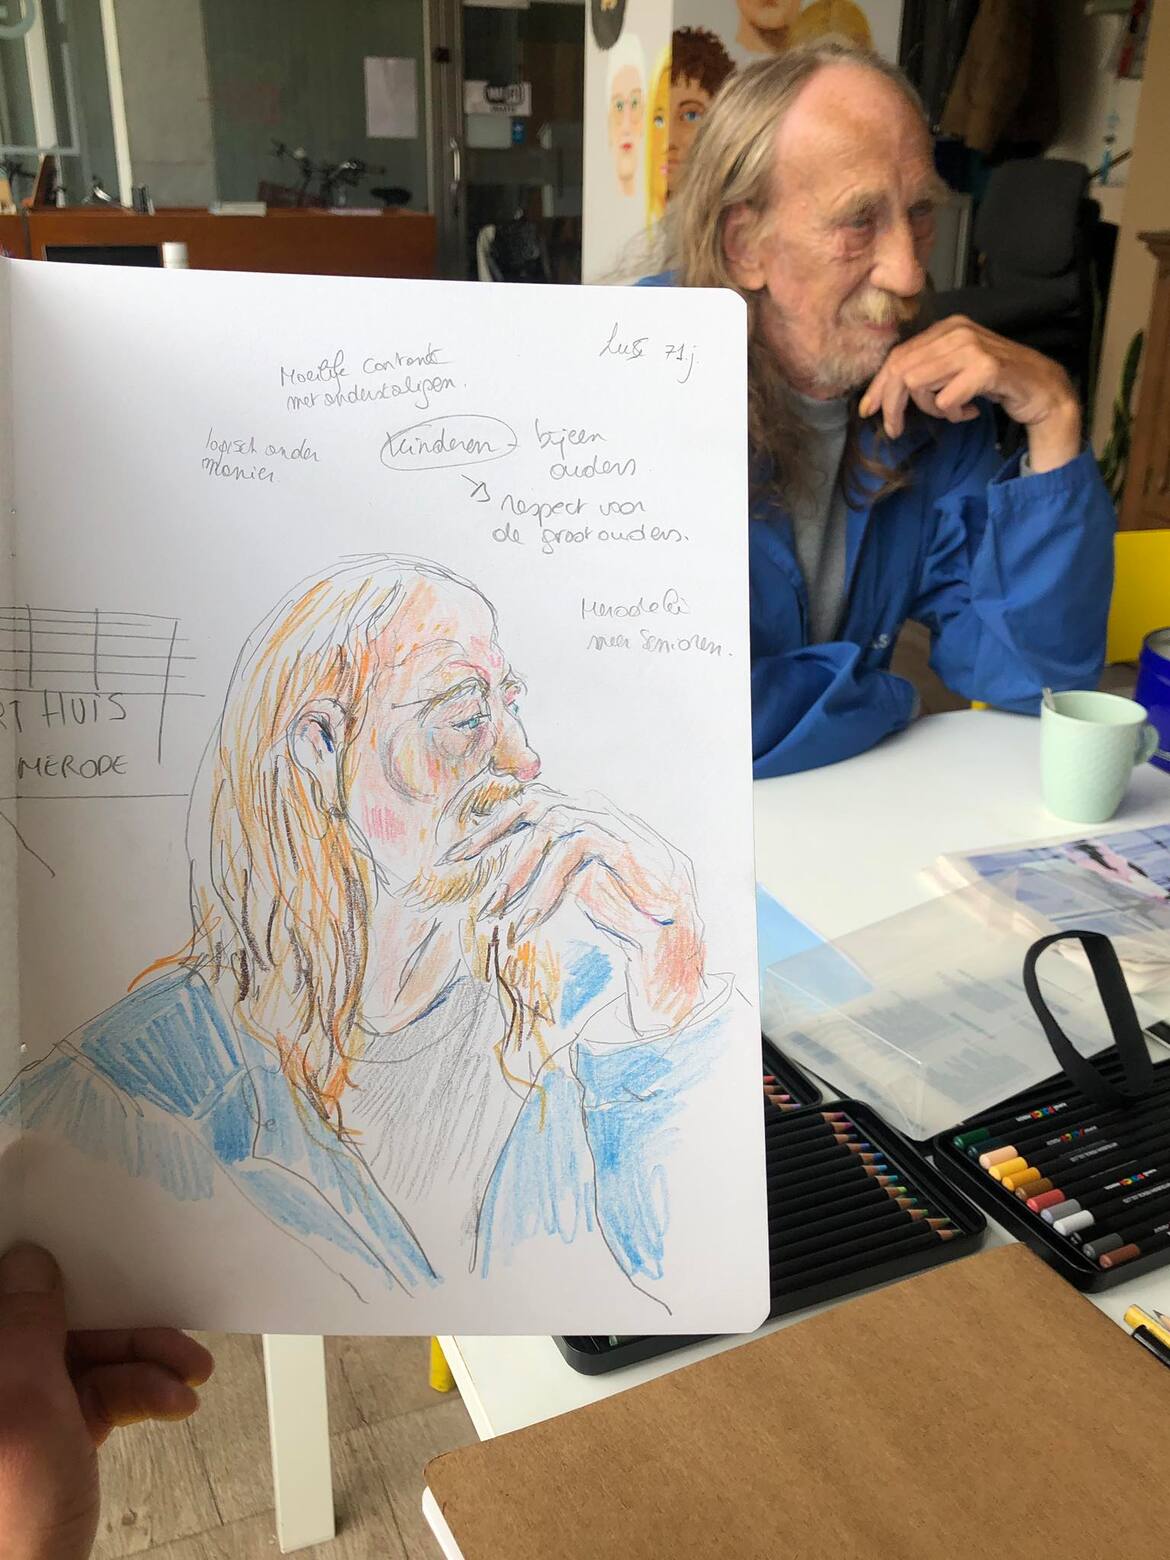 WiFi
Luk 71j.
Moeilijk contact
met
logisch onder
manier
kinderen - bijeen
ouders
respect voor
de grootouders.
Merode
meer senioren.
RT HUIS
MERODE